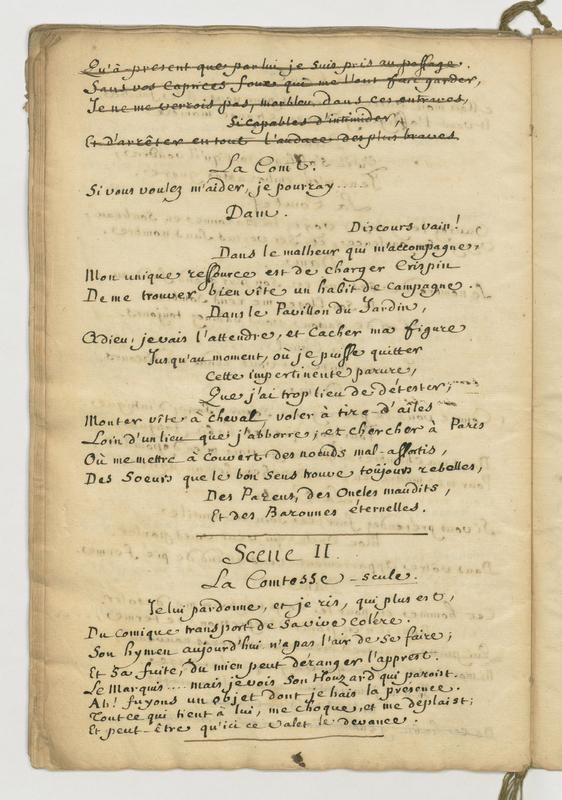 Qu'à present que par lui je suis pris au passage.
Sans vos Caprices foux qui me l'ont fait garder,
Je ne me verrois pas, morbleu, dans ces entraves,
Si capables d'intimider,
Et d'arrêter en tout l'audace des plus braves.
La Comt.
Si vous voulez m'aider, je pourray....
Dam.
Discours vain!
Dans le malheur qui m'accompagne,
Mon unique ressource est de charger Crispin
De me trouver bien vîte un habit de campagne.
Dans le Pavillon du Jardin,
Adieu, je vais l'attendre, et Cacher ma figure
Jusqu'au moment, où je puisse quitter
Cette impertinente parure,
Que j'ai trop lieu de détester;
Monter vîte à cheval, voler à tire-d'aîles
Loin d'un lieu que j'abborre; et chercher à Paris
Où me mettre à couvert des noeuds mal-assortis,
Des Soeurs que le bon sens trouve toujours rebelles,
Des Parens, des Oncles maudits,
Et des Baronnes éternelles.
Scene II.
La Comtesse - seule.
Je lui pardonne, et je ris, qui plus est,
Du comique transport de sa vive colère.
Son hymen aujourd'hui n'a pas l'air de se faire;
Et sa fuite, du mien peut déranger l'apprest.
Le Marquis.... mais je vois son Houzard qui paroist.
Ah! fuyons un objet dont je hais la presence.
Tout ce qui tient à lui, me choque, et me déplaist;
Et peut-être qu'ici ce Valet le devance.